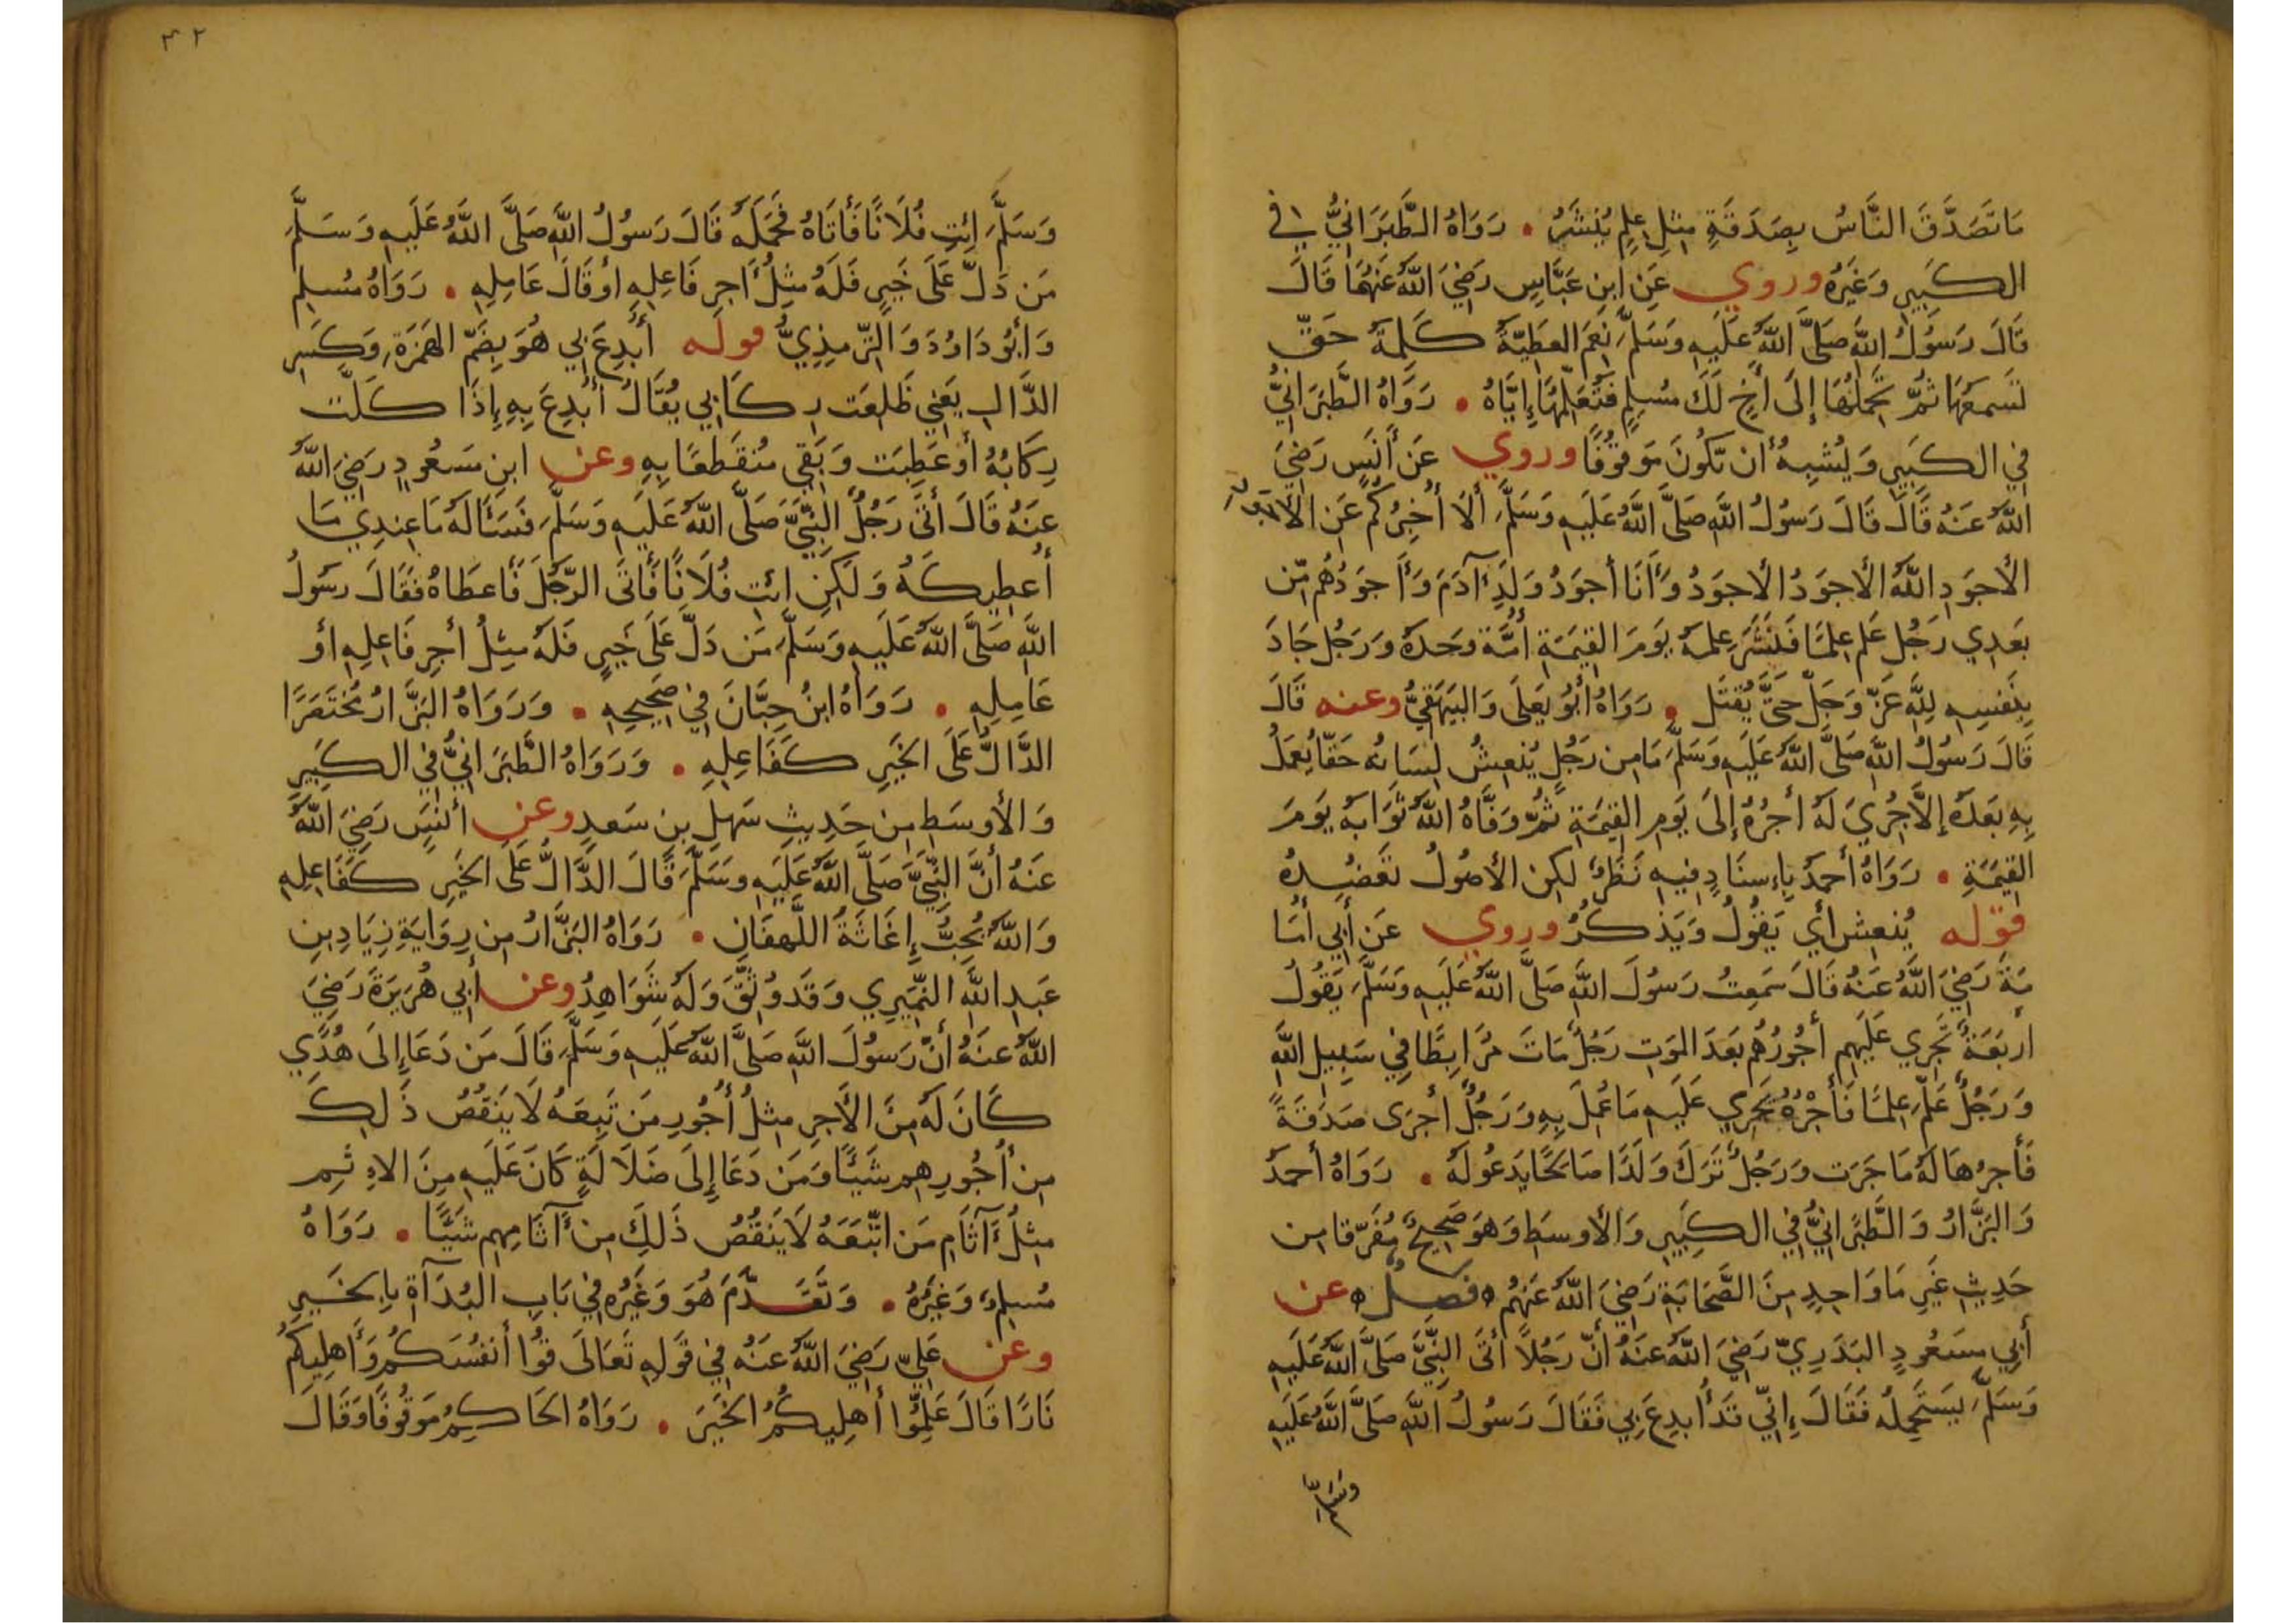 مَا تَصَدَّقَ النَّاسُ بِصَدَقَةٍ مِثْلِ عِلْمٍ يُنْشَرُ . رَوَاهُ الطَّبَرَانِيُّ فِي
الكَبِيرِ وَغَيْرُهُ وروي عَنِ ابنِ عَبَّاسٍ رَضِيَ اللَّهُ عَنْهُمَا قَالَ
قَالَ رَسُولُ اللَّهِ صَلَّى اللَّهُ عَلَيهِ وَسَلَّمَ نِعمَ العَطِيَّةُ كَلِمَةُ حَقٍّ
تَسمَعُهَا ثُمَّ تَحمِلُهَا إِلَى أَخٍ لَكَ مُسلِمٍ فَتُعَلِّمُهَا إِيَّاهُ . رَوَاهُ الطَّبَرَانِيُّ
فِي الكَبِيرِ وَيُشبِهُ أَن تَكُونَ مَوقُوفًا وروي عَن أَنَسٍ رَضِيَ
اللَّهُ عَنهُ قَالَ قَالَ رَسُولُ اللَّهِ صَلَّى اللَّهُ عَلَيهِ وَسَلَّمَ أَلَا أُخبِرُكُم عَنِ الأَجوَدِ
الأَجوَدِ اللَّهُ الأَجوَدُ الأَجوَدُ وَأَنَا أَجوَدُ وَلَدِ آدَمَ وَأَجوَدُهُم مِّن
بَعدِي رَجُلٌ عَلِمَ عِلمًا فَنَشَرَ عِلمَهُ يَومَ القِيمَةِ أُمَّة وَحدَهُ وَرَجُل جَادَ
بِنَفسِهِ لِلَّهِ عَزَّ وَجَلَّ حَتَّى يُقتَل . رَوَاهُ أَبُو يَعلَى وَالبَيهَقِيُّ وعنه قَالَ
قَالَ رَسُولُ اللَّهِ صَلَّى اللَّهُ عَلَيهِ وَسَلَّمَ مَا مِن رَجُلٍ يُنعِشُ لِسَانُه حَقّا يُعمَلُ
بِهِ بَعدَهُ إِلَّا جُرِيَ لَهُ أَجرُهُ إِلَى يَومِ القِيمَةِ ثُمَّ وَفَّاهُ اللَّهُ ثَوَابَهُ يَومَ
القِيمَةِ . رَوَاهُ أَحمَدُ بِإِسنَادٍ فِيهِ نَظَرٌ لكِن الأُصُولُ تَعضُدُهُ
قوله يُنعِش أَي يَقُولُ وَيَذكُرُ وروي عَن أَبِي أُمَا
مَةَ رَضِيَ اللَّهُ عَنهُ قَالَ سَمِعتُ رَسُولَ اللَّهِ صَلَّى اللَّهُ عَلَيهِ وَسَلَّمَ يَقُولُ
أَربَعَةٌ تَجرِي عَلَيهِم أُجُورُهُم بَعدَ المَوتِ رَجُلٌ مَاتَ مُرَابِطًا فِي سَبِيلِ اللَّهِ
وَرَجُلٌ عَلَّمَ عِلمًا فَأَجْرُهُ يَجرِي عَلَيهِ مَا عُمِلَ بِهِ وَرَجُلٌ أَجرَى صَدَقَةً
فَأَجرُهَا لَهُ مَا جَرَت وَرَجُلٌ تَرَكَ وَلَدًا صَالِحًا يَدعُو لَهُ . رَوَاهُ أَحمَدُ
وَالبَزَّارُ وَالطَّبَرَانِيُّ فِي الكَبِيرِ وَالأَوسَطِ وَهوَ صَحِيحٌ مُفَرّقا مِن
حَدِيثِ غَيرِ مَا وَاحِدٍ مِنَ الصَّحَابَةِ رَضِيَ اللَّهُ عَنهُم فَصلٌ عن
أَبِي مَسعُودٍ البَدَرِيِّ رَضِيَ اللَّهُ عَنهُ أَنَّ رَجُلًا أَتَى النَّبِيَّ صَلَّى اللَّهُ عَلَيهِ
وَسَلَّمَ لِيَستَحمِلَهُ فَقَالَ إِنِّي قَد أُبدِعَ بِي فَقَالَ رَسُولُ اللَّهِ صَلَّى اللَّهُ عَلَيهِ
وسلم
٤٢
وَسَلَّمَ ائتِ فُلَانًا فَأَتَاهُ فَحَمَلَهُ قَالَ رَسُولُ اللَّهِ صَلَّى اللَّهُ عَلَيهِ وَسَلَّمَ
مَن دَلَّ عَلَى خَيرٍ فَلَهُ مِثلُ أَجرِ فَاعِلِهِ أَو قَالَ عَامِلِهِ . رَوَاهُ مُسلِم
وَأَبُو دَاوُدَ وَالتِّرمِذِيُّ قوله أُبدِعَ بِي هُوَ بِضَمِّ الهَمزَةِ وَكَسرِ
الدَّالِ يَعنِي ظَلَعَت رِكَابِي يُقَالُ أُبدِعَ بِهِ إِذَا كَلَّت
رِكَابُهُ أَو عَطِبَت وَبَقِي مُنقَطعًا بِهِ وعن ابنِ مَسعُودٍ رَضِيَ اللَّهُ
عَنهُ قَالَ أَتَى رَجُلٌ النَّبِيَّ صَلَّى اللَّهُ عَلَيهِ وَسَلَّمَ فَسَأَلَهُ مَا عِندِي مَا
أُعطِيكَهُ وَلَكِنِ ائتِ فُلَانًا فَأَتَى الرَّجُلَ فَأَعطَاهُ فَقَالَ رسُولُ
اللَّهِ صَلَّى اللَّهُ عَلَيهِ وَسَلَّمَ مَن دَلَّ عَلَى خَيرٍ فَلَهُ مِثلُ أَجرِ فَاعِلِهِ أَو
عَامِلِهِ . رَوَاهُ ابنُ حِبَّانَ فِي صَحِيحِهِ . وَرَوَاهُ البَزَّارُ مُختَصَرًا
الدَّالُّ عَلَى الخَيرِ كَفَاعِلِهِ . وَرَوَاهُ الطَّبَرَانِيُّ فِي الكَبِيرِ
وَالأَوسَطِ مِن حَدِيثِ سَهلِ بنِ سَعدٍ وعن أَنَسٍ رَضِيَ اللَّهُ
عَنهُ أَنَّ النَّبِيَّ صَلَّى اللَّهُ عَلَيهِ وَسَلَّمَ قَالَ الدَّالُّ عَلَى الخَيرِ كَفَاعِلِهِ
وَاللَّهُ يُحِبُّ إِغَاثَةَ اللَّهفَانِ . رَوَاهُ البَزَّارُ مِن رِوَايَةِ زِيَادِ بنِ
عَبدِ اللَّهِ النُّمَيرِي وَقَد وُثِّقَ وَلَهُ شَوَاهِدُ وعن أَبِي هُرَيرَةَ رَضِيَ
اللَّهُ عَنهُ أَنَّ رَسُولَ اللَّهِ صَلَّى اللَّهُ عَلَيهِ وَسَلَّمَ قَالَ مَن دَعَا إِلَى هُدًي
كَانَ لَهُ مِنَ الأَجرِ مِثلُ أُجُورِ مَن تَبِعَهُ لَا يَنقُصُ ذَلِكَ
مِن أُجُورِهِم شَيئًا وَمَن دَعَا إِلَى ضَلَالَةٍ كَانَ عَلَيهِ مِنَ الإِثمِ
مِثلُ آثَامِ مَنِ اتَّبَعَهُ لَا يَنقُصُ ذَلِكَ مِن آثَامِهِم شَيئًا . رَوَاهُ
مُسلِمٌ وَغَيرُهُ . وَتَقَدَّمَ هُوَ وَغَيرُه فِي بَابِ البُدَآةِ بِالخَيرِ
وعن عَلِيٍّ رَضِيَ اللَّهُ عَنهُ فِي قَولِهِ تَعَالَى قُوا أَنفُسَكُم وَأَهلِيكُم
نَارًا قَالَ عَلِّمُوا أَهلِيكُمُ الخَيرَ . رَوَاهُ الحَاكِمُ مَوقُوفًا وَقَالَ